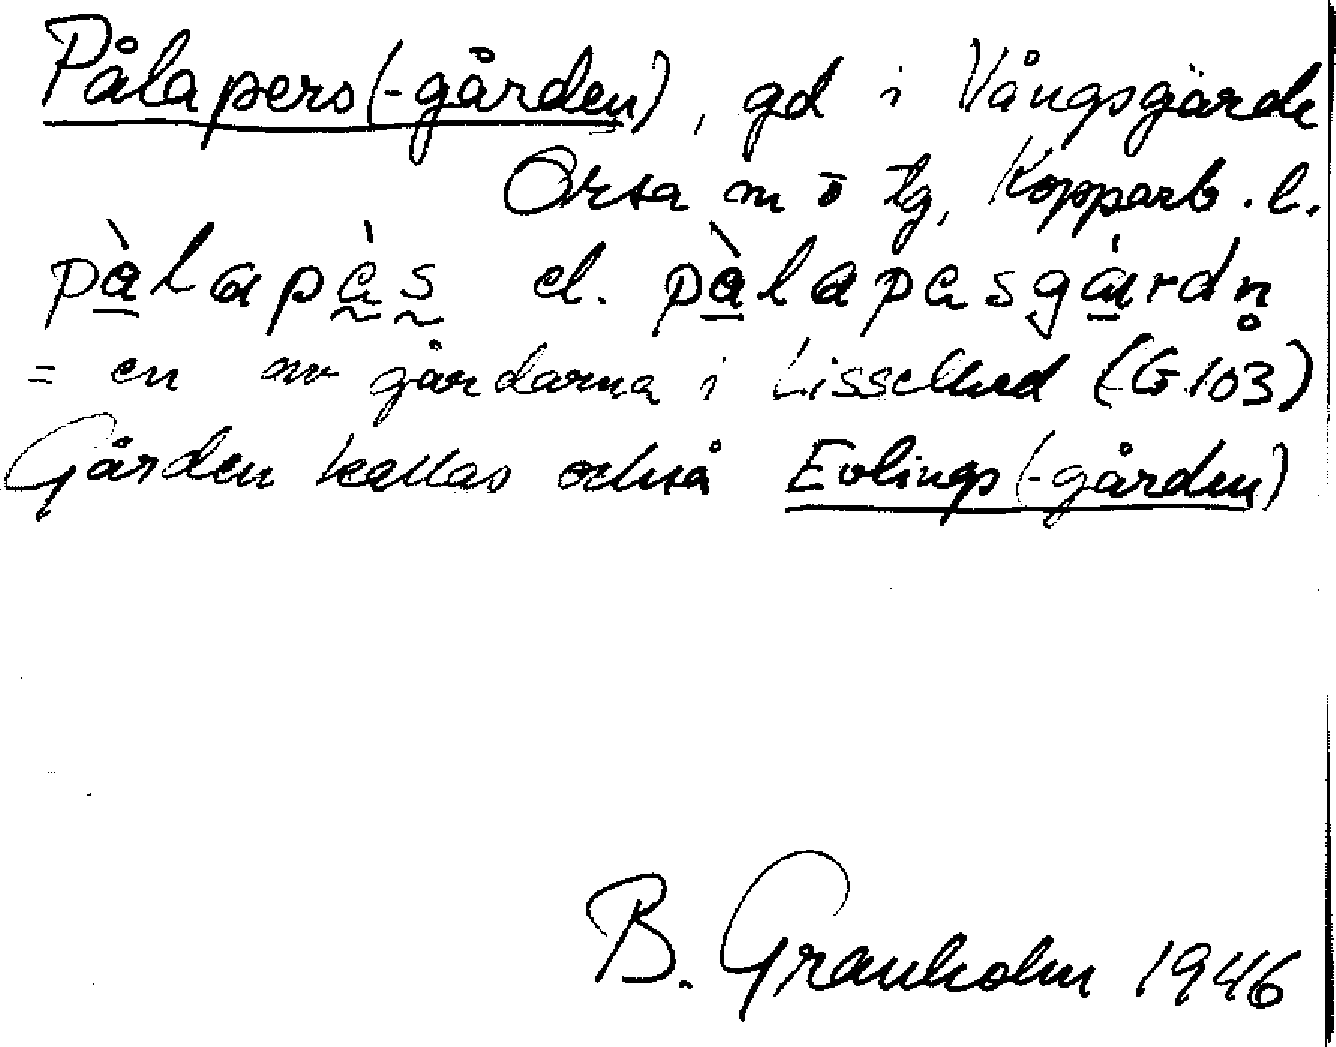 Pålapers(-gården), gd i Vångsgärde
Orsa sn o tg, Kopparb. l.
pàlapàs el. pàlapasgárdn̥
= en av gårdarna i Lisselhed (G.103)
Gården kallas också Evlings(-gården)
B. Granholm 1946